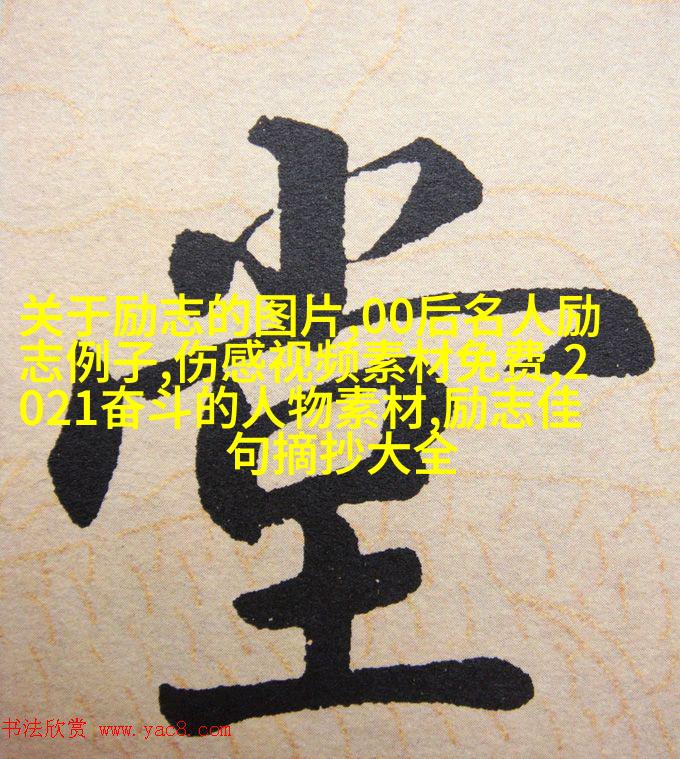 堂
关于励志的图片,00后名人励
志例子,伤感视频素材免费,2
021奋斗的人物素材,励志佳
句摘抄大全
书法欣赏 www.yac8.com